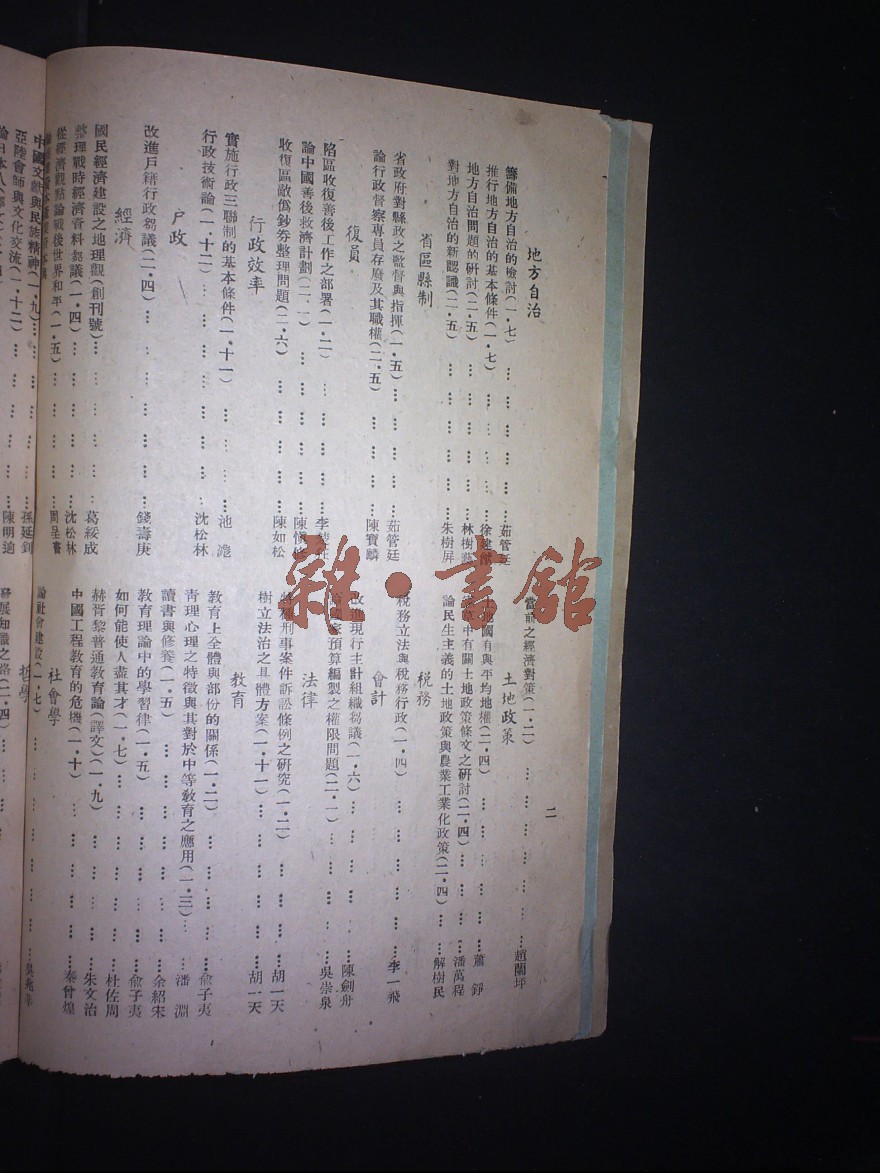 地方自治
籌備地方自治的檢討(一·七)…茹管廷
推行地方自治的基本條件(一·七)…徐
地方自治問題的研討(二·五)…林樹
對地方自治的新認識(二·五)…朱樹屏
省區縣制
省政府對縣政之監督與指揮(一·五)…茹管廷
論行政督察專員存廢及其職權(二·五)…陳寶麟
復員
陷區收復善後工作之部署(一·二)…李
論中國善後救濟計劃(二·一)…陳
收復區敵偽鈔券整理問題(二·六)…陳如松
行政效率
實施行政三聯制的基本條件(一·十一)…池滮
行政技術論(一·十二)…沈松林
戶政
改進戶籍行政芻議(二·四)…錢壽庚
經濟
國民經濟建設之地理觀(創刊號)…葛綏成
整理戰時經濟資料芻議(一·四)…沈松林
從經濟觀點論戰後世界和平(一·五)…周呈書
中國文獻與民族精神(一·九)…孫延釗
亞陸會師與文化交流(一·十二)…陳明適
二
當前之經濟對策(一·二)…趙蘭坪
土地政策
土地國有與平均地權(二·四)…蕭錚
草中有關土地政策條文之研討(二·四)…潘萬程
論民生主義的土地政策與農業工業化政策(二·四)…解樹民
稅務
稅務立法與稅務行政(一·四)…李一飛
會計
改進現行主計組織芻議(一·六)…陳劍舟
預算編製之權限問題(二·一)…吳崇泉
法律
特種刑事案件訴訟條例之研究(一·二)…胡一天
樹立法治之具體方案(一·十一)…胡一天
教育
教育上全體與部份的關係(一·二)…俞子夷
青理心理之特徵與其對於中等教育之應用(一·三)…潘淵
讀書與修養(一·五)…余紹宋
教育理論中的學習律(一·五)…俞子夷
如何能使人盡其才(一·七)…杜佐周
赫胥黎普通教育論(譯文)(一·九)…朱文治
中國工程教育的危機(一·十)…秦曾煌
社會學
論社會建設(一·七)…吳兆莘
哲學
發展知識之路(二·四)
雜·書館